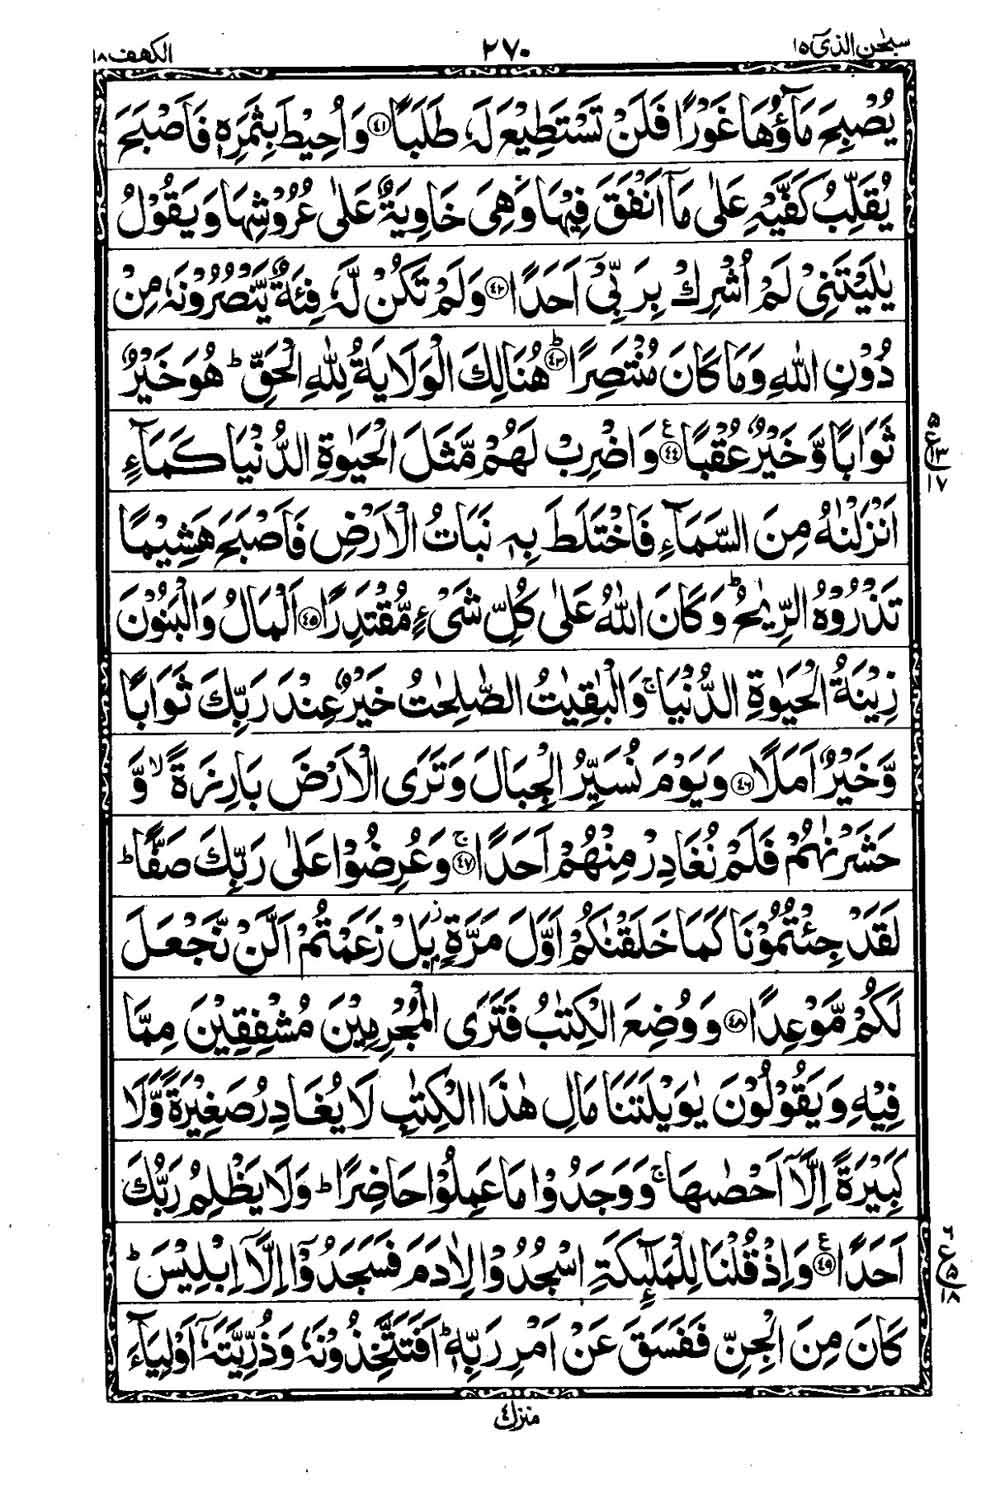 سبحٰن الذی ١٥ ٢٧٠ الکهف ١٨
یُصْبِحَ مَآؤُهَا غَوْرًا فَلَنْ تَسْتَطِیْعَ لَهٗ طَلَبًا ﴿٤١﴾ وَاُحِیْطَ بِثَمَرِهٖ فَاَصْبَحَ
یُقَلِّبُ كَفَّیْهِ عَلٰی مَاۤ اَنْفَقَ فِیْهَا وَهِیَ خَاوِیَةٌ عَلٰی عُرُوْشِهَا وَیَقُوْلُ
یٰلَیْتَنِیْ لَمْ اُشْرِكْ بِرَبِّیْۤ اَحَدًا ﴿٤٢﴾ وَلَمْ تَكُنْ لَّهٗ فِئَةٌ یَّنْصُرُوْنَهٗ مِنْ
دُوْنِ اللّٰهِ وَمَا كَانَ مُنْتَصِرًا ﴿٤٣﴾ؕ هُنَالِكَ الْوَلَایَةُ لِلّٰهِ الْحَقِّ ؕ هُوَ خَیْرٌ
ثَوَابًا وَّخَیْرٌ عُقْبًا ﴿٤٤﴾ع وَاضْرِبْ لَهُمْ مَّثَلَ الْحَیٰوةِ الدُّنْیَا كَمَآءٍ
٥ ع ١٣ ١٧
اَنْزَلْنٰهُ مِنَ السَّمَآءِ فَاخْتَلَطَ بِهٖ نَبَاتُ الْاَرْضِ فَاَصْبَحَ هَشِیْمًا
تَذْرُوْهُ الرِّیٰحُ ؕ وَكَانَ اللّٰهُ عَلٰی كُلِّ شَیْءٍ مُّقْتَدِرًا ﴿٤٥﴾ اَلْمَالُ وَالْبَنُوْنَ
زِیْنَةُ الْحَیٰوةِ الدُّنْیَا ۚ وَالْبٰقِیٰتُ الصّٰلِحٰتُ خَیْرٌ عِنْدَ رَبِّكَ ثَوَابًا
وَّخَیْرٌ اَمَلًا ﴿٤٦﴾ وَیَوْمَ نُسَیِّرُ الْجِبَالَ وَتَرَی الْاَرْضَ بَارِزَةً ۙ وَّ
حَشَرْنٰهُمْ فَلَمْ نُغَادِرْ مِنْهُمْ اَحَدًا ﴿٤٧﴾ۚ وَعُرِضُوْا عَلٰی رَبِّكَ صَفًّا ؕ
لَقَدْ جِئْتُمُوْنَا كَمَا خَلَقْنٰكُمْ اَوَّلَ مَرَّةٍۭ ز بَلْ زَعَمْتُمْ اَلَّنْ نَّجْعَلَ
لَكُمْ مَّوْعِدًا ﴿٤٨﴾ وَوُضِعَ الْكِتٰبُ فَتَرَی الْمُجْرِمِیْنَ مُشْفِقِیْنَ مِمَّا
فِیْهِ وَیَقُوْلُوْنَ یٰوَیْلَتَنَا مَالِ هٰذَا الْكِتٰبِ لَا یُغَادِرُ صَغِیْرَةً وَّلَا
كَبِیْرَةً اِلَّاۤ اَحْصٰىهَا ۚ وَوَجَدُوْا مَا عَمِلُوْا حَاضِرًا ؕ وَلَا یَظْلِمُ رَبُّكَ
اَحَدًا ﴿٤٩﴾ع وَاِذْ قُلْنَا لِلْمَلٰٓئِكَةِ اسْجُدُوْا لِاٰدَمَ فَسَجَدُوْۤا اِلَّاۤ اِبْلِیْسَ ؕ
٦ ع ٥ ١٨
كَانَ مِنَ الْجِنِّ فَفَسَقَ عَنْ اَمْرِ رَبِّهٖ ؕ اَفَتَتَّخِذُوْنَهٗ وَذُرِّیَّتَهٗۤ اَوْلِیَآءَ
منزل ٤